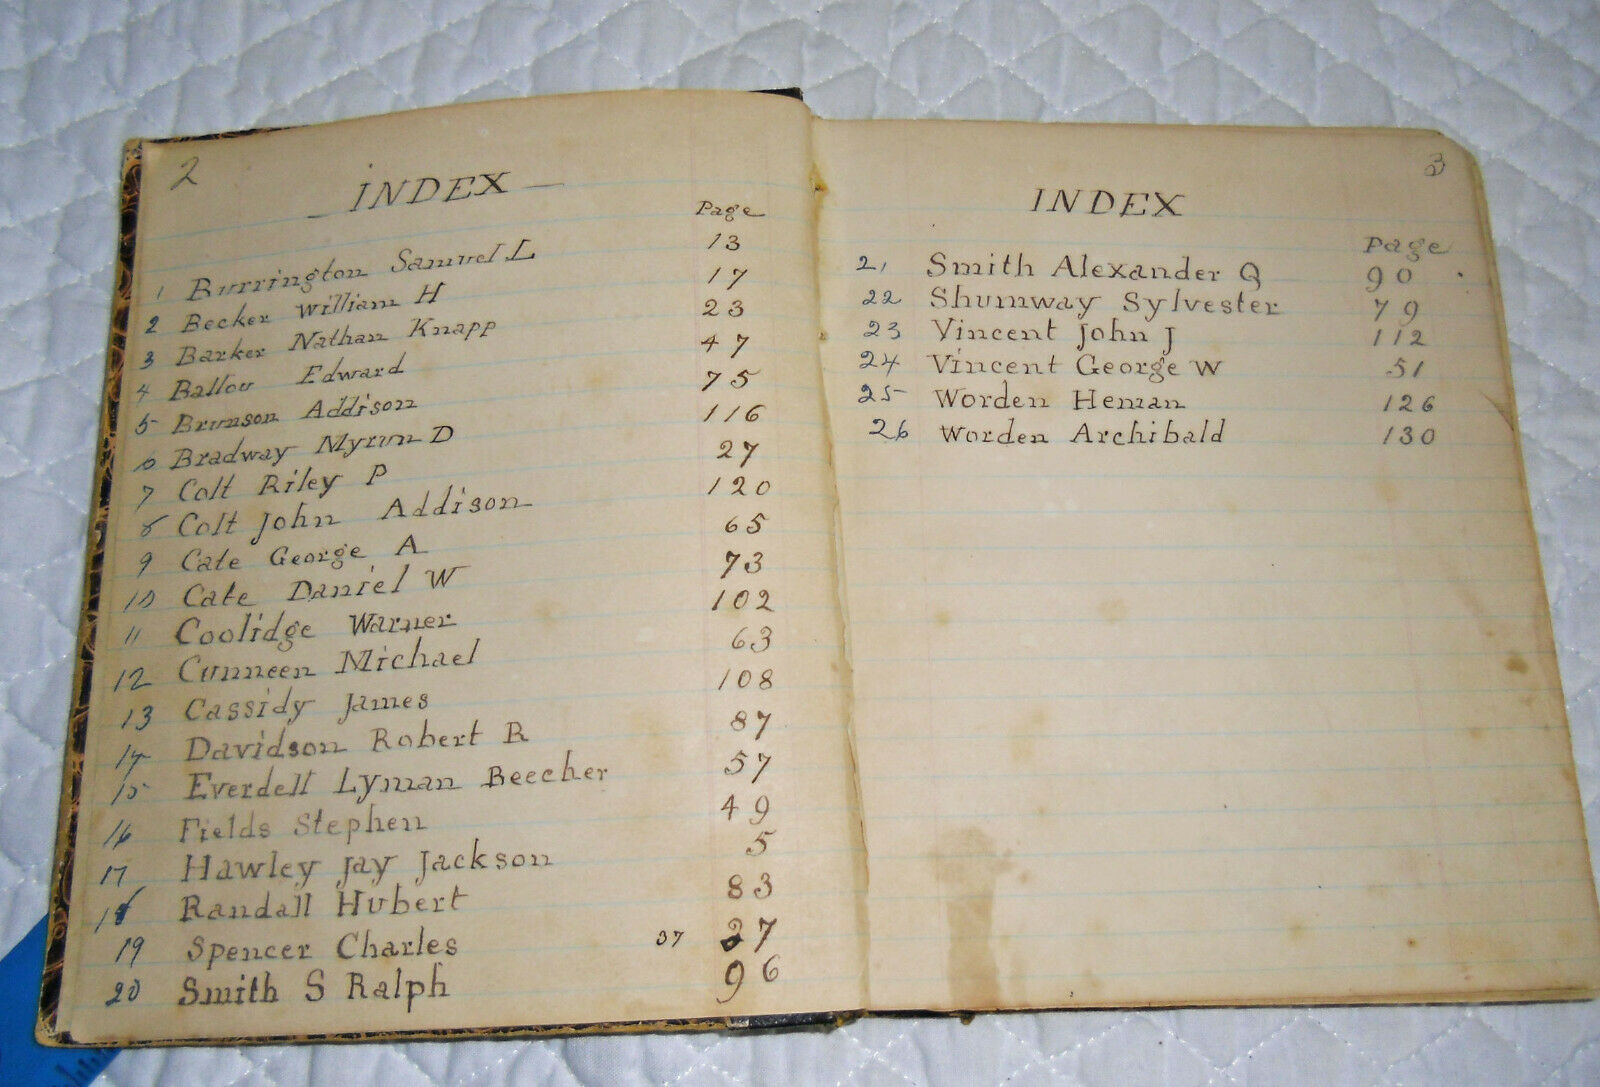 2
INDEX
Page
1 Burrington Samuel L 13
2 Becker William H 17
3 Barker Nathan Knapp 23
4 Ballou Edward 47
5 Brunson Addison 75
6 Bradway Myron D 116
7 Colt Riley P 27
8 Colt John Addison 120
9 Cate George A 65
10 Cate Daniel W 73
11 Coolidge Warner 102
12 Cunneen Michael 63
13 Cassidy James 108
14 Davidson Robert R 87
15 Everdell Lyman Beecher 57
16 Fields Stephen 49
17 Hawley Jay Jackson 5
18 Randall Hubert 83
19 Spencer Charles 37 27
20 Smith S Ralph 96
3
INDEX
Page
21 Smith Alexander Q 90
22 Shumway Sylvester 79
23 Vincent John J 112
24 Vincent George W 51
25 Worden Heman 126
26 Worden Archibald 130